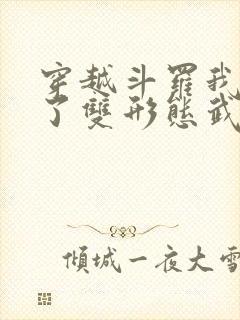 穿越斗羅我
了雙形態武
傾城一夜大雪